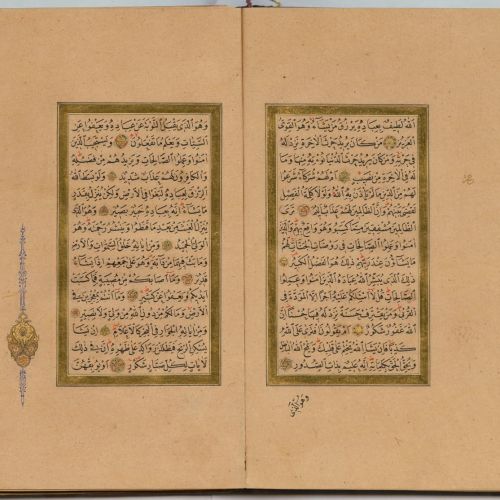 اَللّٰهُ لَطِيفٌ بِعِبَادِهِ يَرْزُقُ مَنْ يَشَاءُ وَهُوَ الْقَوِىُّ
الْعَزِيزُ مَنْ كَانَ يُرِيدُ حَرْثَ الْاٰخِرَةِ نَزِدْ لَهُ
فِى حَرْثِهِ وَمَنْ كَانَ يُرِيدُ حَرْثَ الدُّنْيَا نُؤْتِهِ مِنْهَا وَمَا
لَهُ فِى الْاٰخِرَةِ مِنْ نَصِيبٍ اَمْ لَهُمْ شُرَكَاءُ شَرَعُوا
لَهُمْ مِنَ الدِّينِ مَا لَمْ يَأْذَنْ بِهِ اللّٰهُ وَلَوْلَا كَلِمَةُ الْفَصْلِ
لَقُضِىَ بَيْنَهُمْ وَاِنَّ الظَّالِمِينَ لَهُمْ عَذَابٌ اَلِيمٌ تَرَى
الظَّالِمِينَ مُشْفِقِينَ مِمَّا كَسَبُوا وَهُوَ وَاقِعٌ بِهِمْ وَالَّذِينَ
اٰمَنُوا وَعَمِلُوا الصَّالِحَاتِ فِى رَوْضَاتِ الْجَنَّاتِ لَهُمْ
مَا يَشَاؤُنَ عِنْدَ رَبِّهِمْ ذٰلِكَ هُوَ الْفَضْلُ الْكَبِيرُ
ذٰلِكَ الَّذِى يُبَشِّرُ اللّٰهُ عِبَادَهُ الَّذِينَ اٰمَنُوا وَعَمِلُوا
الصَّالِحَاتِ قُلْ لَا اَسْئَلُكُمْ عَلَيْهِ اَجْرًا اِلَّا الْمَوَدَّةَ فِى
الْقُرْبٰى وَمَنْ يَقْتَرِفْ حَسَنَةً نَزِدْ لَهُ فِيهَا حُسْنًا اِنَّ
اللّٰهَ غَفُورٌ شَكُورٌ اَمْ يَقُولُونَ افْتَرٰى عَلَى اللّٰهِ
كَذِبًا فَاِنْ يَشَاِ اللّٰهُ يَخْتِمْ عَلٰى قَلْبِكَ وَيَمْحُ اللّٰهُ الْبَاطِلَ
وَيُحِقُّ الْحَقَّ بِكَلِمَاتِهِ اِنَّهُ عَلِيمٌ بِذَاتِ الصُّدُورِ
وَهُوَ الَّذِى
وَهُوَ الَّذِى يَقْبَلُ التَّوْبَةَ عَنْ عِبَادِهِ وَيَعْفُوا عَنِ
السَّيِّئَاتِ وَيَعْلَمُ مَا تَفْعَلُونَ وَيَسْتَجِيبُ الَّذِينَ
اٰمَنُوا وَعَمِلُوا الصَّالِحَاتِ وَيَزِيدُهُمْ مِنْ فَضْلِهِ
وَالْكَافِرُونَ لَهُمْ عَذَابٌ شَدِيدٌ وَلَوْ بَسَطَ اللّٰهُ
الرِّزْقَ لِعِبَادِهِ لَبَغَوْا فِى الْاَرْضِ وَلٰكِنْ يُنَزِّلُ بِقَدَرٍ
مَا يَشَاءُ اِنَّهُ بِعِبَادِهِ خَبِيرٌ بَصِيرٌ وَهُوَ الَّذِى
يُنَزِّلُ الْغَيْثَ مِنْ بَعْدِ مَا قَنَطُوا وَيَنْشُرُ رَحْمَتَهُ وَهُوَ
الْوَلِىُّ الْحَمِيدُ وَمِنْ اٰيَاتِهِ خَلْقُ السَّمٰوَاتِ وَالْاَرْضِ
وَمَا بَثَّ فِيهِمَا مِنْ دَابَّةٍ وَهُوَ عَلٰى جَمْعِهِمْ اِذَا يَشَاءُ
قَدِيرٌ وَمَا اَصَابَكُمْ مِنْ مُصِيبَةٍ فَبِمَا كَسَبَتْ
اَيْدِيكُمْ وَيَعْفُوا عَنْ كَثِيرٍ وَمَا اَنْتُمْ بِمُعْجِزِينَ فِى
الْاَرْضِ وَمَا لَكُمْ مِنْ دُونِ اللّٰهِ مِنْ وَلِىٍّ وَلَا نَصِيرٍ
وَمِنْ اٰيَاتِهِ الْجَوَارِ فِى الْبَحْرِ كَالْاَعْلَامِ اِنْ يَشَأْ
يُسْكِنِ الرِّيحَ فَيَظْلَلْنَ رَوَاكِدَ عَلٰى ظَهْرِهِ اِنَّ فِى ذٰلِكَ
لَاٰيَاتٍ لِكُلِّ صَبَّارٍ شَكُورٍ اَوْ يُوبِقْهُنَّ